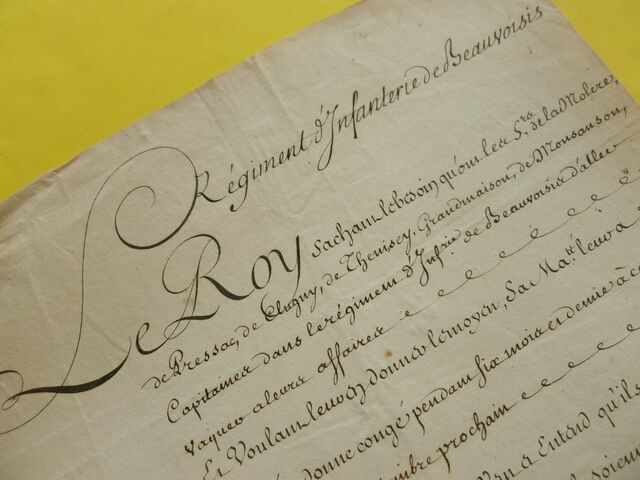 Régiment d'Infanterie de Beauvoisis
Le Roy sachant le besoin qu'ont les Srs. de la Molere,
de Pressac, de Clugny, de Thenisey, Grandmaison, de Monsanson,
Capitaines dans le régiment d'Infrie. de Beauvoisis d'aller
vaquer a leurs affaires
Et Voulant leur en donner le moyen, Sa Maté. leur a
donné congé pendant six mois et demie à
prochain
Entend qu'ils
soient